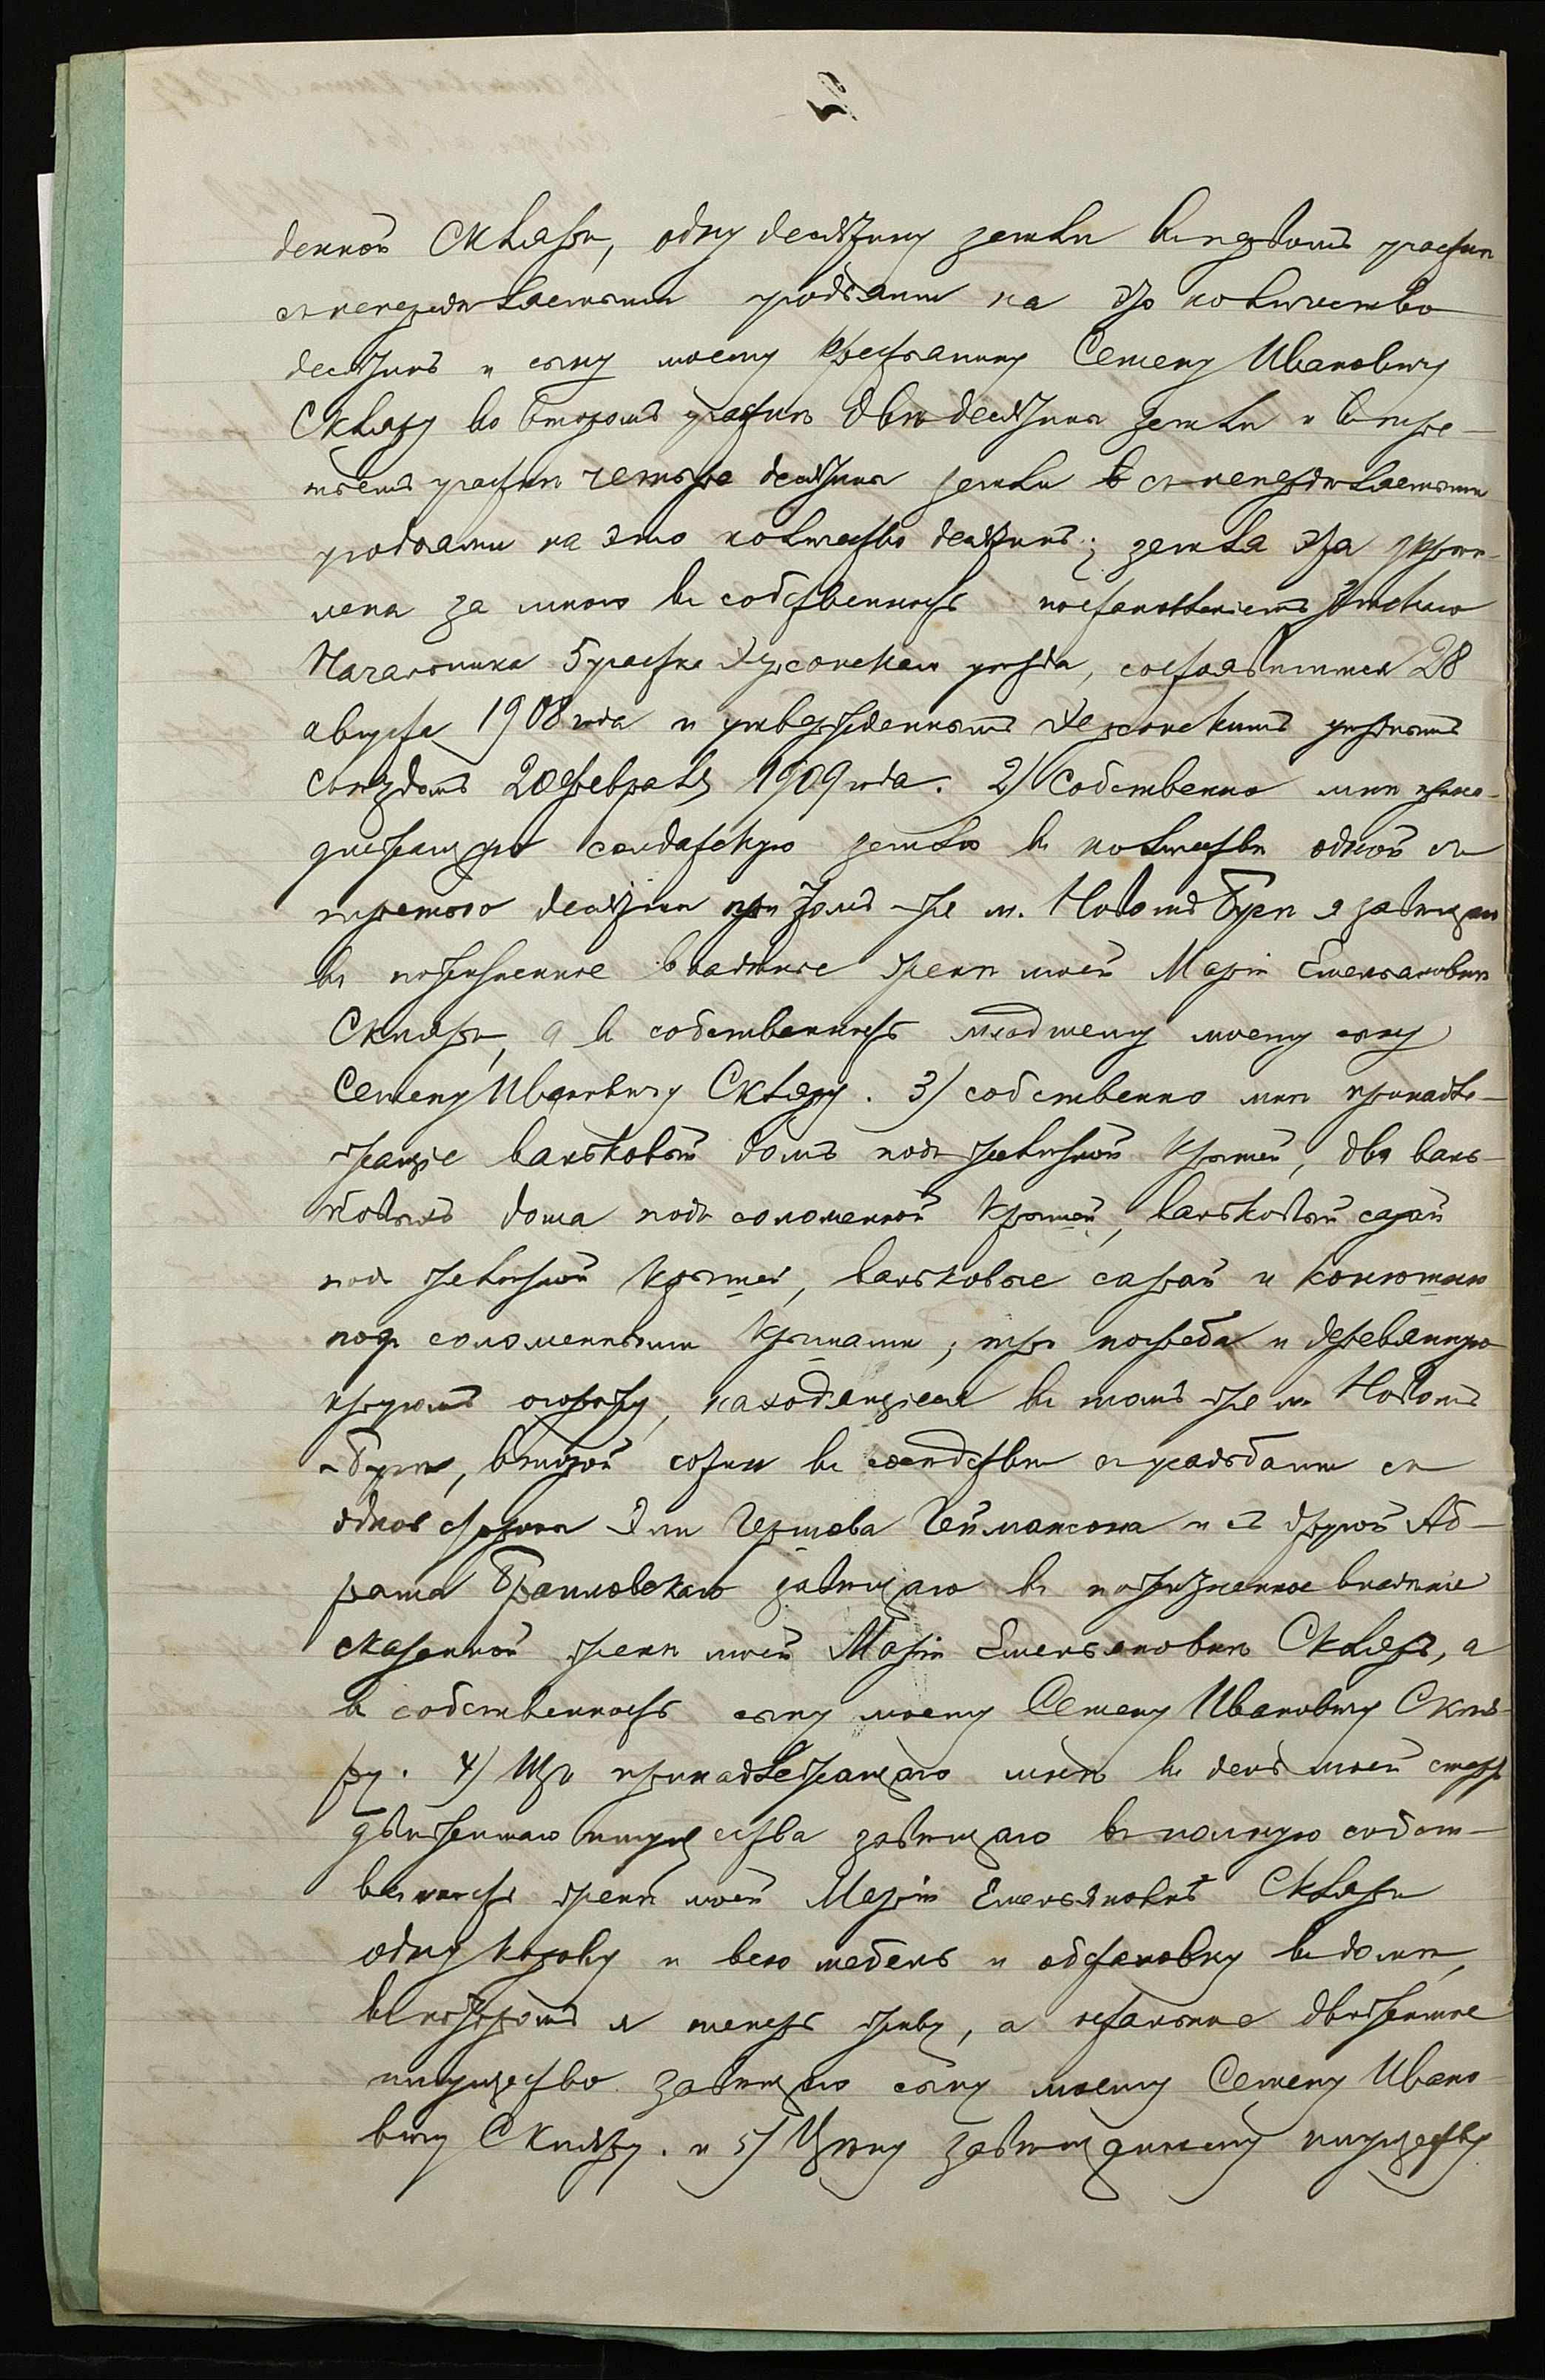 2
денной Скляръ, одну десятину земли въ первомъ участкѣ
съ нераздѣльными угодьями на это количество
десятинъ и сыну моему крестьянину Семену Ивановичу
Скляру во второмъ участкѣ двѣ десятины земли и въ тре-
тьемъ участкѣ четыре десятины земли съ нераздѣльными
угодьями на это количество десятинъ; земля эта укрѣп-
лена за мною въ собственность постановленіемъ Земскаго
Начальника 5 участка Херсонскаго уѣзда, состоявшимся 28
августа 1908 года и утвержденнымъ Херсонскимъ уѣзднымъ
съѣздомъ 20 февраля 1909 года. 2) Собственно мнѣ прина-
длежащую солдатскую землю въ количествѣ одной съ
третью десятин при томъ-же м. Новомъ Бугѣ я завѣщаю
въ пожизненное владѣніе женѣ моей Маріи Емельяновнѣ
Скляръ, а въ собственность младшему моему сыну
Семену Ивановичу Скляру. 3) собственно мнѣ принадле-
жащіе вальковый домъ подъ желѣзной крышей, два валь-
ковыхъ дома подъ соломенной крышей, вальковый сарай
подъ желѣзной крышей, вальковые сарай и конюшню
подъ соломенными крышами; три погреба и деревянную
кругомъ огорожу, находящіеся въ томъ-же м. Новомъ-
Бугѣ, второй сотни въ сосѣдствѣ съ усадьбами съ
одной стороны Эли Гершова Геймансона и съ другой Аб-
рама Браиловскаго завѣщаю въ пожизненное владѣніе
сказанной женѣ моей Маріи Емельяновнѣ Скляръ, а
въ собственность сыну моему Семену Ивановичу Скля-
ру. 4) Изъ принадлежащаго мнѣ въ день моей смерти
движимаго имущества завѣщаю въ полную собст-
венность женѣ моей Маріи Емельяновнѣ Скляръ
одну корову и всю мебель и обстановку въ домѣ,
въ которомъ я теперь живу, а остальное движимое
имущество завѣщаю сыну моему Семену Ивано-
вичу Скляру. и 5) Цѣну завѣщанному имуществу